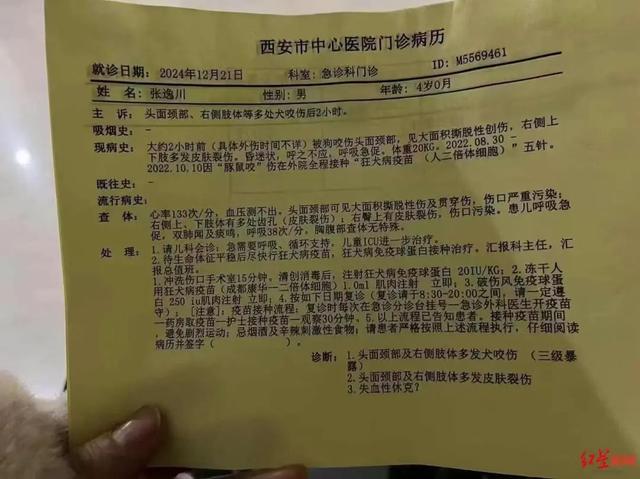 西安市中心医院门诊病历
就诊日期：2024年12月21日 科室：急诊科门诊 ID：M5569461
姓 名：张逸川 性别：男 年龄：4岁0月
主 诉：头面颈部、右侧肢体等多处犬咬伤后2小时。
吸烟史：－
现病史：大约2小时前（具体外伤时间不详）被狗咬伤头面颈部，见大面积撕脱性创伤，右侧上
下肢多发皮肤裂伤。昏迷状，呼之不应，呼吸急促。体重20KG。2022.08.30 －
2022.10.10因“豚鼠咬”伤在外院全程接种“狂犬病疫苗 （人二倍体细胞）”五针。
既往史：－
流行病史：
查 体：心率133次/分，血压测不出。头面颈部可见大面积撕脱性伤及贯穿伤，伤口严重污染；
右侧上、下肢体有多处齿孔（皮肤裂伤）；右臀上有皮肤裂伤，伤口污染。患儿呼吸急
促，双肺闻及痰鸣，呼吸38次/分，胸腹部查体无特殊。
处 理：1.请儿科会诊：急需要呼吸、循环支持，儿童ICU进一步治疗。
2.待生命体征平稳后尽快行狂犬病疫苗、狂犬病免疫球蛋白接种治疗。汇报科主任，汇
报总值班。
1.冲洗伤口手术室15分钟，清创消毒后，注射狂犬病免疫球蛋白 20IU/KG；2.冻干人
用狂犬病疫苗（成都康华－二倍体细胞）1.0ml 肌肉注射 立即；3.破伤风免疫球蛋
白 250 iu肌肉注射 立即；4.按如下日期复诊（复诊请于8:30-20:00之间，请一定遵
守）；[注意]：疫苗接种流程：复诊时每次在急诊分诊台挂号—急诊外科医生开疫苗
—药房取疫苗—护士接种疫苗—观察30分钟。5.以上流程已告知患者。接种疫苗期间
，避免剧烈运动；忌烟酒及辛辣刺激性食物；请患者严格按照上述流程执行，仔细阅读
病历并签字（ ）。
诊断：1.头面颈部及右侧肢体多发犬咬伤 （三级暴
露）
2.头面颈部及右侧肢体多发皮肤裂伤
3.失血性休克？
红星